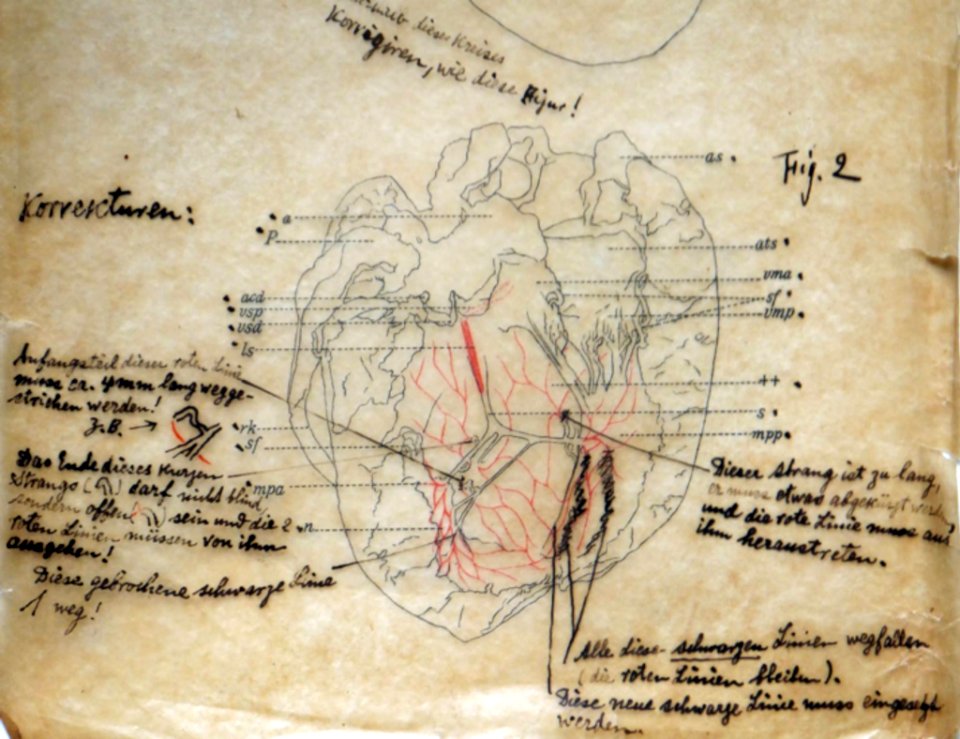 dieses Kreises
Korrigiren, wie diese Figur!
Fig. 2
Korrekturen:
as
a
P
ats
vma
acd
sf
vsp
vmp
vsd
ls
Anfangsteil dieser roten Linie
muss ca. 4mm lang wegge-
strichen werden!
z.B. →
++
s
rk
mpp
sf
Das Ende dieses kurzen
Strangs ( ) darf nicht blind,
sondern offen ( ) sein und die 2
roten Linien müssen von ihm
ausgehen!
mpa
n
Dieser Strang ist zu lang,
er muss etwas abgekürzt werden
und die rote Linie muss aus
ihm heraustreten.
Diese gebrochene schwarze Linie
weg!
Alle diese schwarzen Linien wegfallen
(die roten Linien bleiben).
Diese neue schwarze Linie muss eingesetzt
werden.